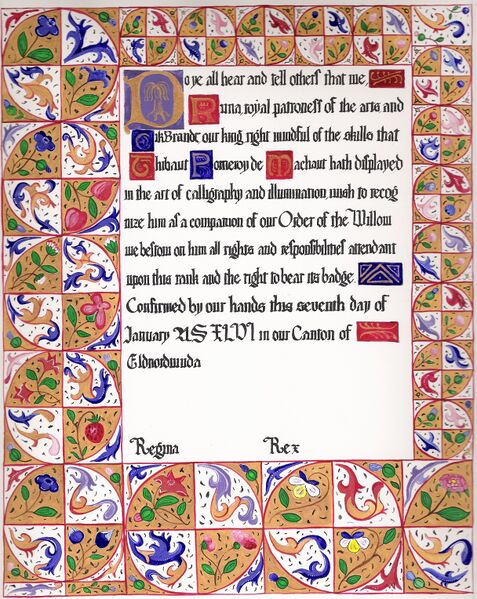 Do ye all hear and tell others that we,
Runa, royal patroness of the arts and
Brandr our king, right mindful of the skills that
Thibaut Pomeroy de Machaut hath displayed
in the art of calligraphy and illumination, wish to recog
nize him as a companion of our Order of the Willow
we bestow on him all rights and responsibilities attendant
upon this rank and the right to bear its badge.
Confirmed by our hands this seventh day of
January AS XLVI in our Canton of
Regina Rex